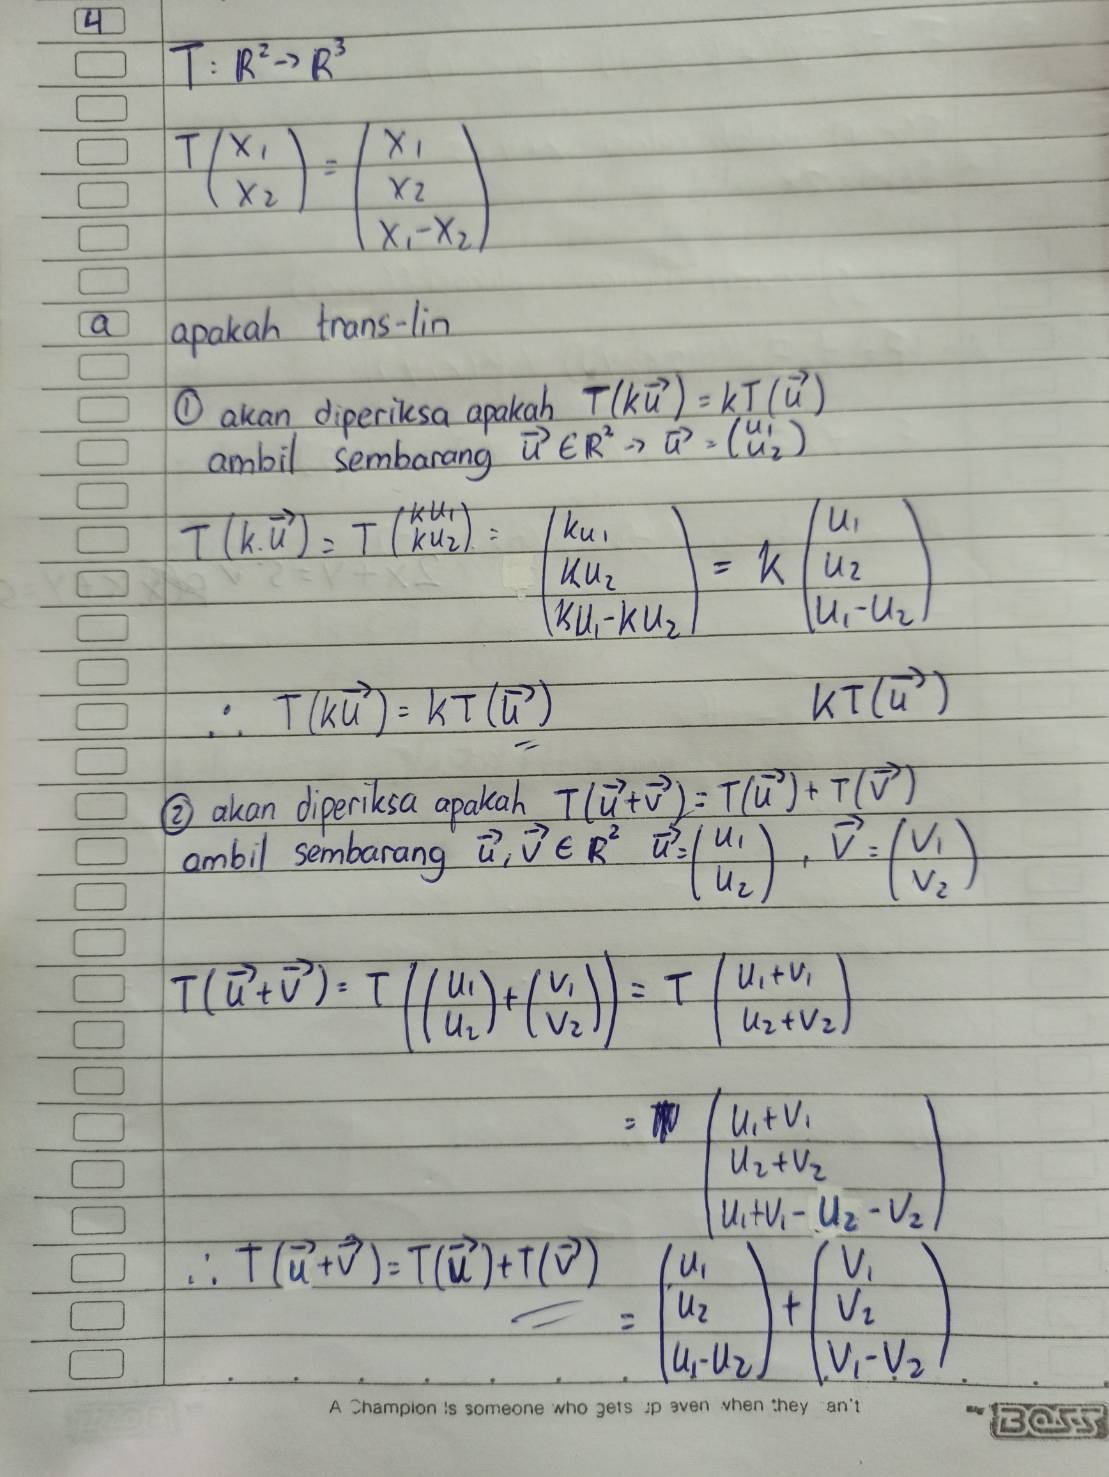 4
T : R² → R³
T (x₁ x₂) = (x₁ x₂ x₁-x₂)
a apakah trans-lin
① akan diperiksa apakah T(ku⃗) = kT(u⃗)
ambil sembarang u⃗ ∈ R² → u⃗ = (u₁ u₂)
T(k.u⃗) = T (ku₁ ku₂) = (ku₁ ku₂ ku₁-ku₂) = k (u₁ u₂ u₁-u₂)
∴ T(ku⃗) = kT(u⃗) kT(u⃗)
② akan diperiksa apakah T(u⃗+v⃗) = T(u⃗) + T(v⃗)
ambil sembarang u⃗, v⃗ ∈ R² u⃗ = (u₁ u₂) , v⃗ = (v₁ v₂)
T(u⃗+v⃗) = T ((u₁ u₂) + (v₁ v₂)) = T (u₁+v₁ u₂+v₂)
= (u₁+v₁ u₂+v₂ u₁+v₁-u₂-v₂)
∴ T(u⃗+v⃗) = T(u⃗)+T(v⃗) = (u₁ u₂ u₁-u₂) + (v₁ v₂ v₁-v₂)
A Champion is someone who gets up even when they can't
BOSS